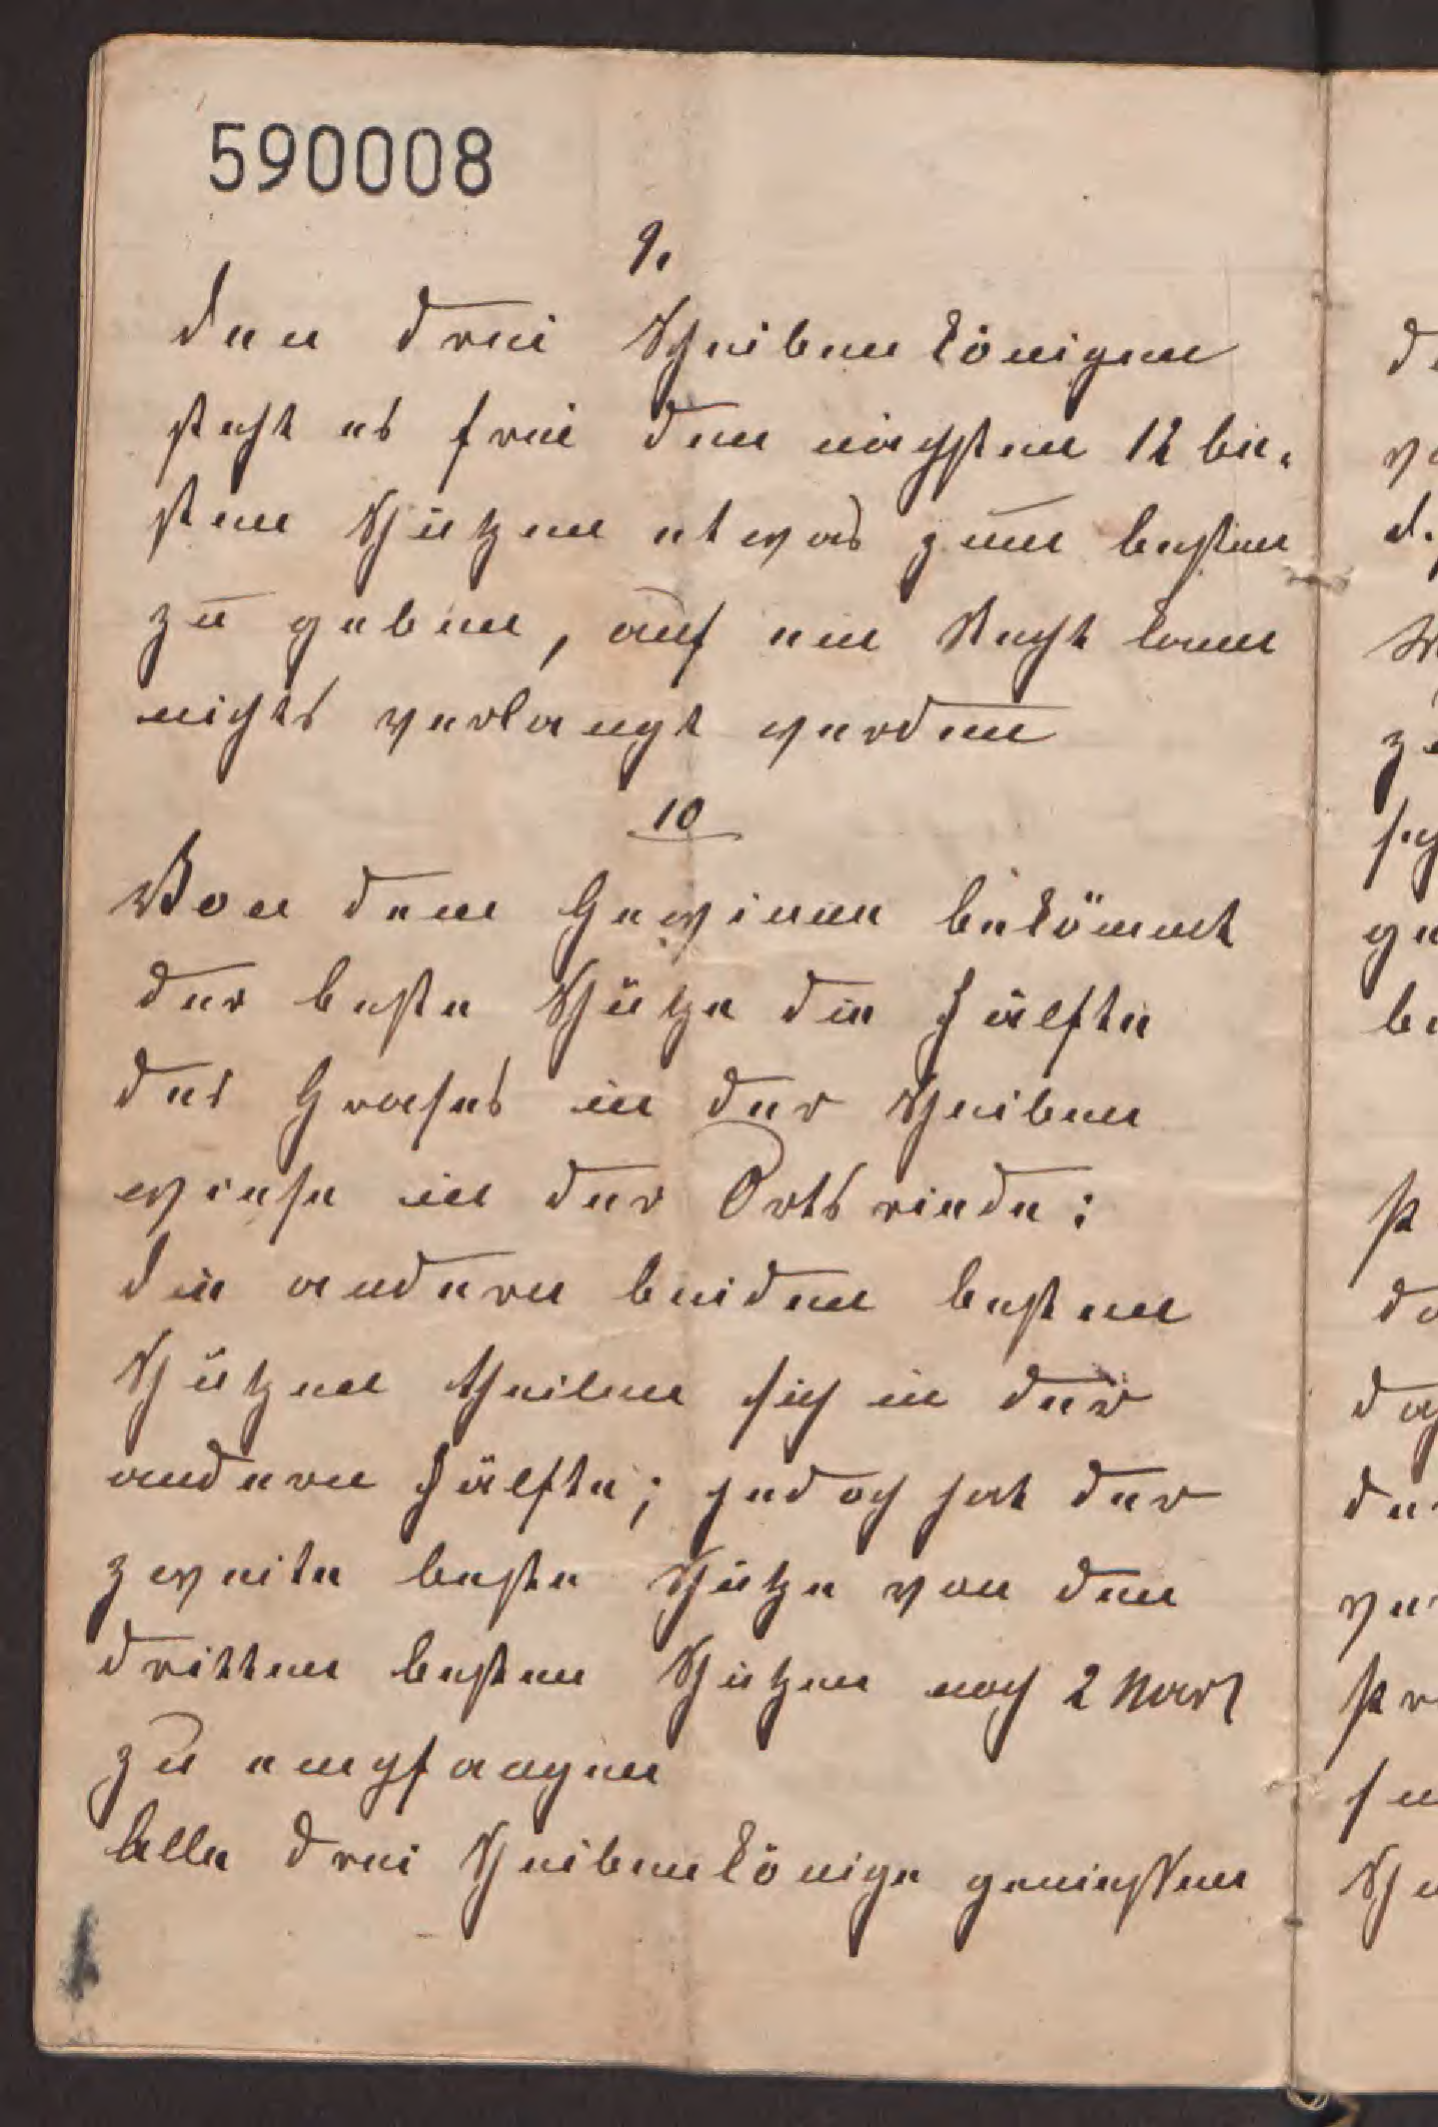 590008
9.
den drei Scheibenkönigen
steht es frei den nächsten 12 be-
sten Schützen etwas zum besten
zu geben, auf ein Recht kann
nichts verlangt werden
10
Von dem Gewinne bekömmt
der beste Schütze die Hälfte
des Grases in der Scheiben
wiese in der Ortsriede:
die andern beiden besten
Schützen theilen sich in der
andern Hälfte; jedoch hat der
zweite beste Schütze von den
dritten besten Schützen noch 2 Mark
zu empfangen
Alle drei Scheibenkönige geniessen